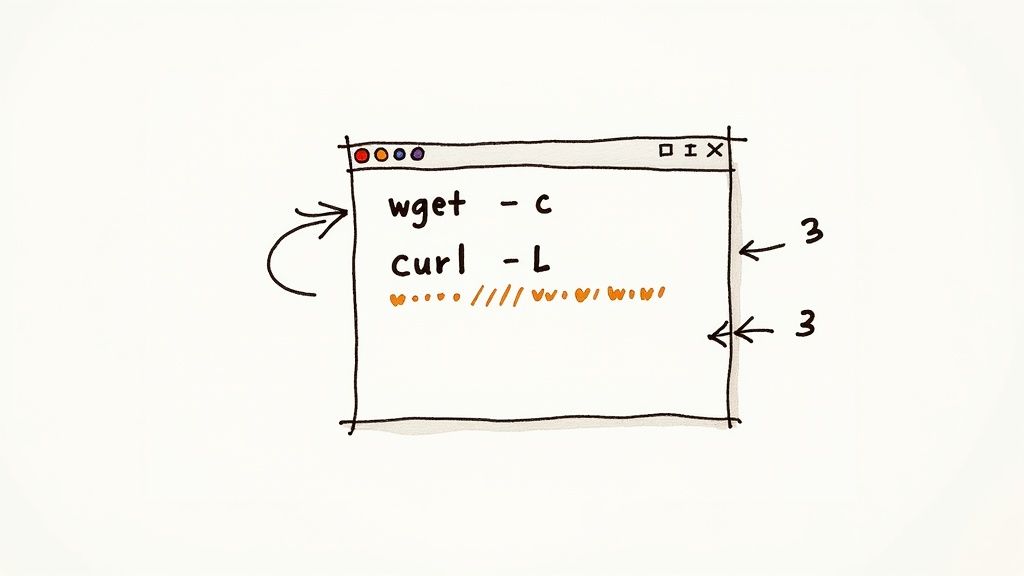 wget - c
curl - L
3
3